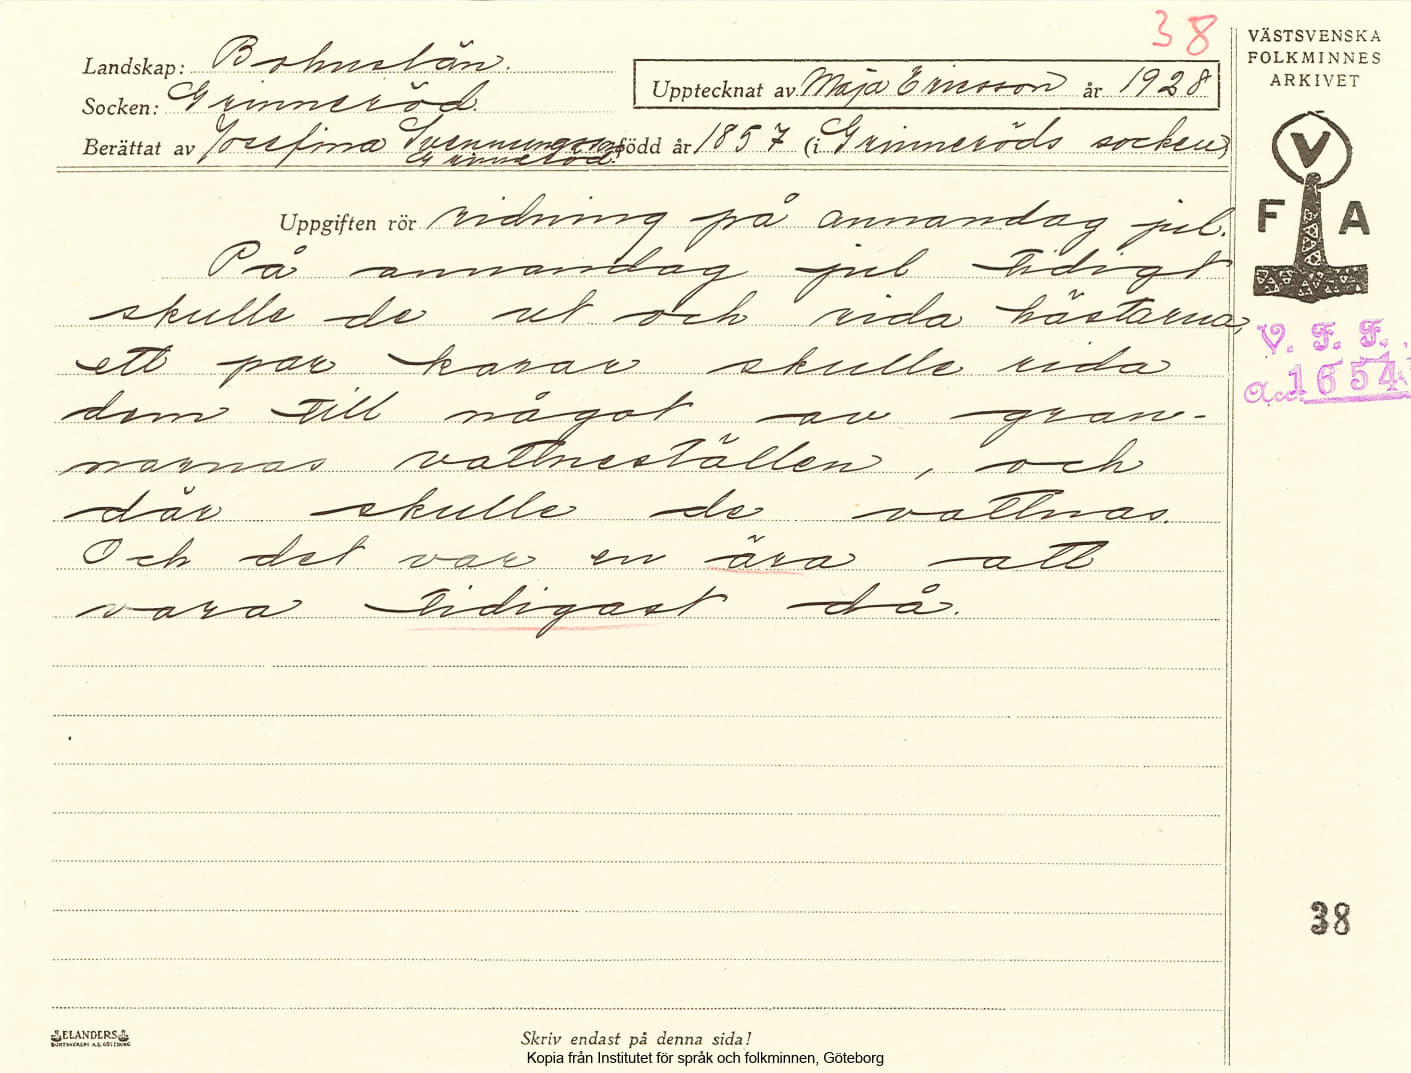 38
VÄSTSVENSKA
FOLKMINNES
ARKIVET
Landskap: Bohuslän.
Socken: Grinneröd.
Upptecknat av Maja Ericsson år 1928
Berättat av Josefina Svenningsson född år 1857 (i Grinneröds socken)
Grinneröd.
V
F A
Uppgiften rör ridning på annandag jul.
På annandag jul tidigt
skulle de ut och rida hästarna,
ett par karar skulle rida
dem till något av gran-
narnas vattneställen, och
där skulle de vattnas.
Och det var en ära att
vara tidigast då.
V. F. F.
Acc. 1654
38
ELANDERS
BOKTRYCKERI A.B. GÖTEBORG
Skriv endast på denna sida!
Kopia från Institutet för språk och folkminnen, Göteborg